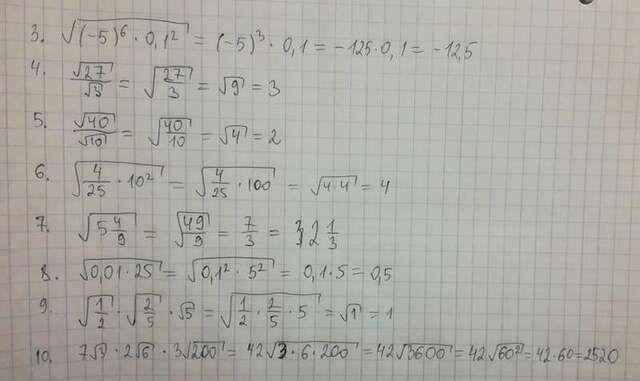 3. √((-5)⁶ · 0,1²) = (-5)³ · 0,1 = -125·0,1 = -12,5
4. √27/√3 = √(27/3) = √9 = 3
5. √40/√10 = √(40/10) = √4 = 2
6. √(4/25 · 10²) = √(4/25 · 100) = √(4·4) = 4
7. √(5 4/9) = √(49/9) = 7/3 = 2 1/3
8. √(0,01 · 25) = √(0,1² · 5²) = 0,1 · 5 = 0,5
9. √(1/2) · √(2/5) · √5 = √(1/2 · 2/5 · 5) = √1 = 1
10. 7√3 · 2√6 · 3√200 = 42√(3 · 6 · 200) = 42√3600 = 42√60² = 42·60 = 2520